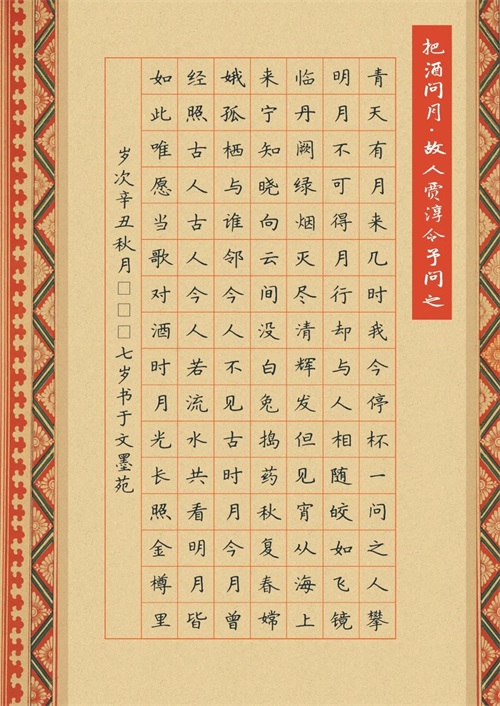 把酒问月·故人贾淳令予问之
青天有月来几时我今停杯一问之人攀
明月不可得月行却与人相随皎如飞镜
临丹阙绿烟灭尽清辉发但见宵从海上
来宁知晓向云间没白兔捣药秋复春嫦
娥孤栖与谁邻今人不见古时月今月曾
经照古人古人今人若流水共看明月皆
如此唯愿当歌对酒时月光长照金樽里
岁次辛丑秋月□□□七岁书于文墨苑